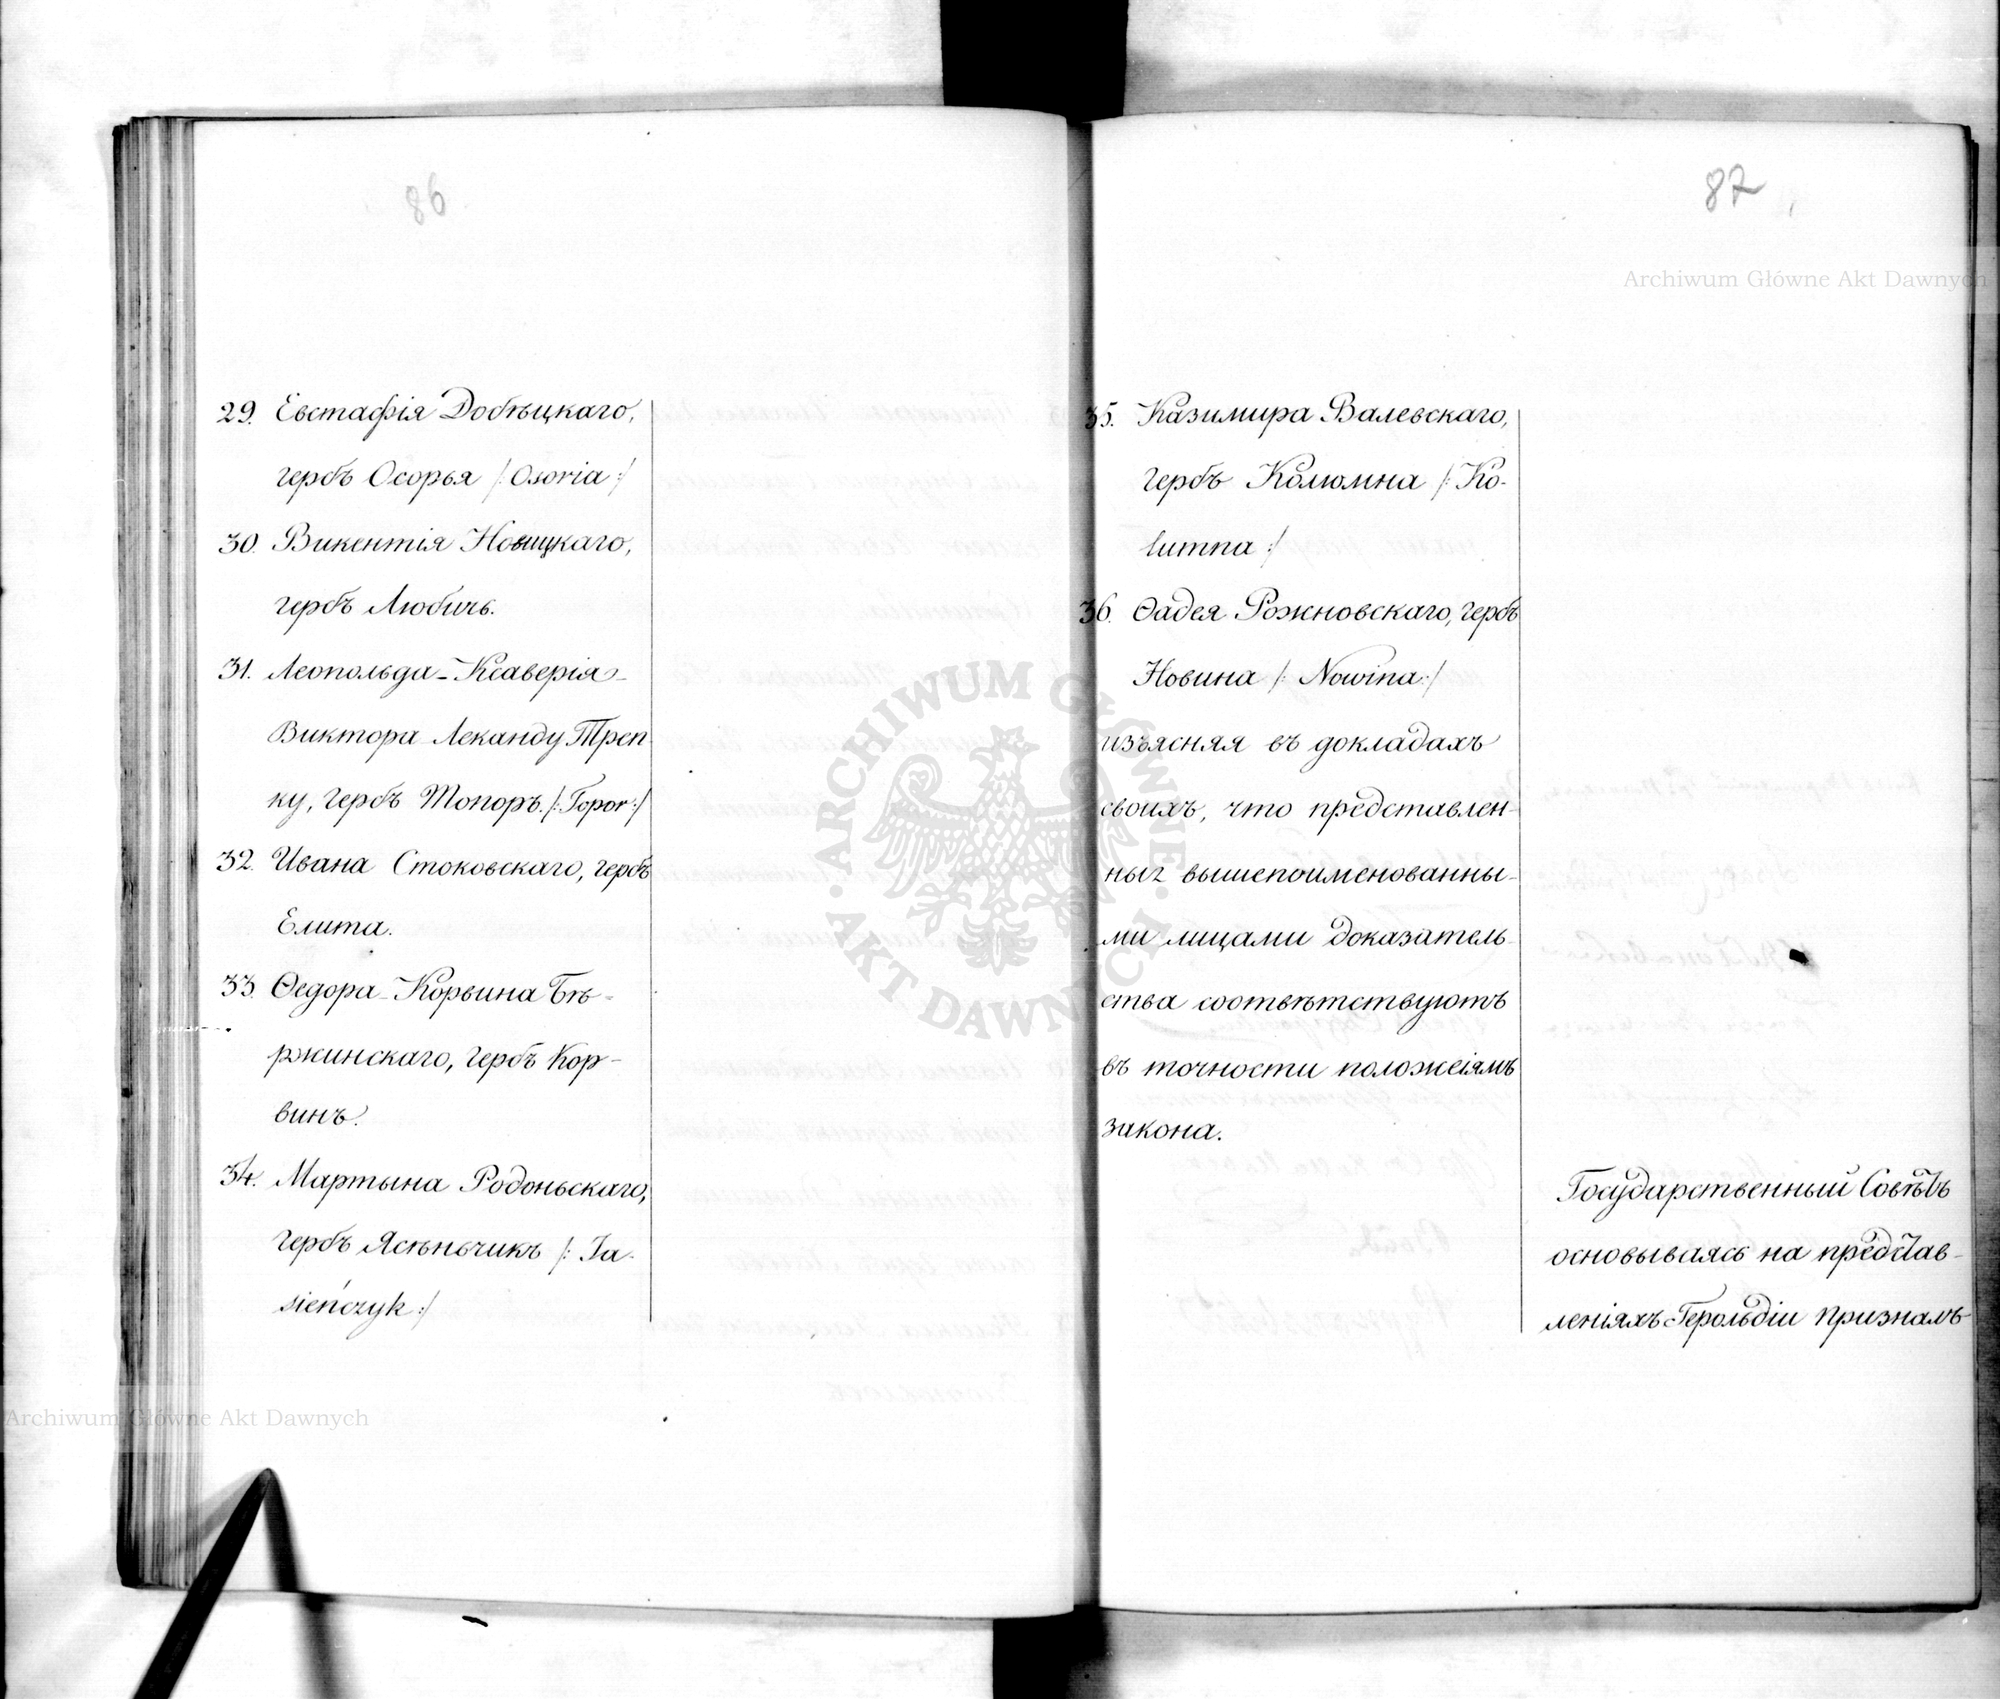 86
29. Евстафія Добѣцкаго,
гербъ Осорья /: Osoria :/
30. Викентія Новицкаго,
гербъ Любичъ.
31. Леопольда-Ксаверія-
Виктора Леканду Треп-
ку, гербъ Топоръ. /: Topor :/
32. Ивана Стоковскаго, гербъ
Елита.
33. Ѳедора-Корвина Бѣ-
ржинскаго, гербъ Кор-
винъ.
34. Мартына Родоньскаго,
гербъ Ясѣньчикъ /: Ja-
sieńczyk :/
87
Archiwum Główne Akt Dawnych
35. Казимира Валевскаго,
гербъ Колюмна /: Ko-
lumna :/
36. Ѳадея Рожновскаго, гербъ
Новина /: Nowina :/
изъясняя въ докладахъ
своихъ, что представлен-
ныя вышепоименованны-
ми лицами доказатель-
ства соотвѣтствуютъ
въ точности положеіямъ
закона.
Государственный Совѣтъ
основываясь на представ-
леніяхъ Герольдіи призналъ
ARCHIWUM GŁÓWNE
AKT DAWNYCH
Archiwum Główne Akt Dawnych